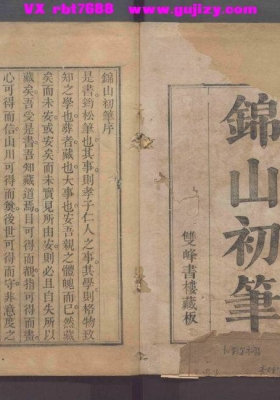 VX rbt7688 www.gujizy.com
錦山初筆
雙峰書樓藏板
錦山初筆序
是書筠松筆也其事則孝子仁人之事其學則格物致
知之學也葬者藏也大事也安吾親之體魄而已然藏
矣而未安或安矣而未實見所由安則必且自失所以
藏矣吾受是書吾知藏道焉目可得而覩指可得而畫
心可得而信山川可得而奠後世可得而守非意度之